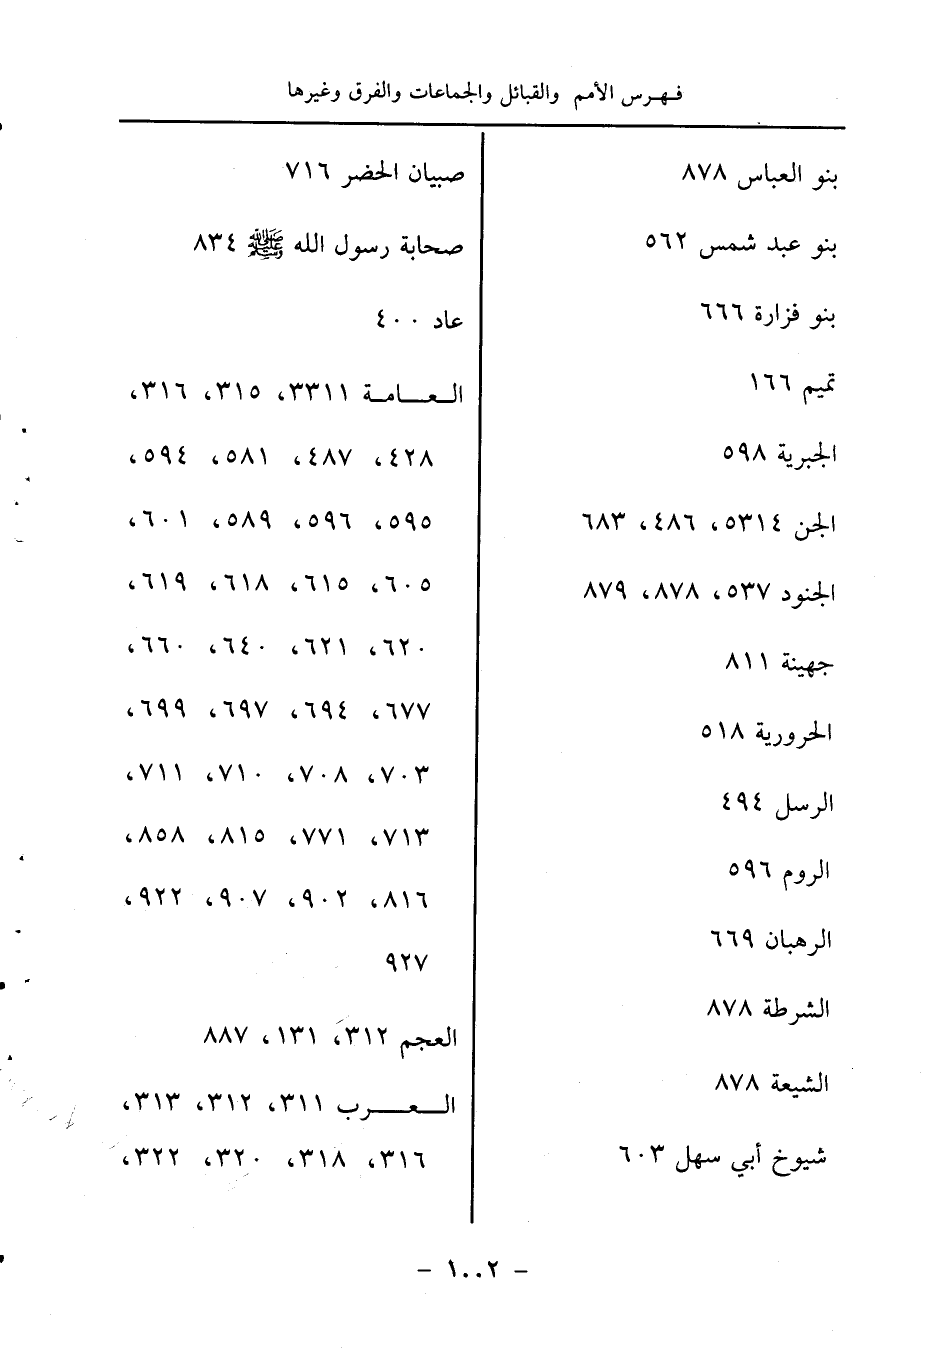 فهرس الأمم والقبائل والجماعات والفرق وغيرها
بنو العباس ٨٧٨
بنو عبد شمس ٥٦٢
بنو فزارة ٦٦٦
تميم ١٦٦
الجبرية ٥٩٨
الجن ٥٣١٤، ٤٨٦، ٦٨٣
الجنود ٥٣٧، ٨٧٨، ٨٧٩
جهينة ٨١١
الحرورية ٥١٨
الرسل ٤٩٤
الروم ٥٩٦
الرهبان ٦٦٩
الشرطة ٨٧٨
الشيعة ٨٧٨
شيوخ أبي سهل ٦٠٣
صبيان الحضر ٧١٦
صحابة رسول الله ﷺ ٨٣٤
عاد ٤٠٠
العامة ٣٣١١، ٣١٥، ٣١٦،
٤٢٨، ٤٨٧، ٥٨١، ٥٩٤،
٥٩٥، ٥٩٦، ٥٨٩، ٦٠١،
٦٠٥، ٦١٥، ٦١٨، ٦١٩،
٦٢٠، ٦٢١، ٦٤٠، ٦٦٠،
٦٧٧، ٦٩٤، ٦٩٧، ٦٩٩،
٧٠٣، ٧٠٨، ٧١٠، ٧١١،
٧١٣، ٧٧١، ٨١٥، ٨٥٨،
٨١٦، ٩٠٢، ٩٠٧، ٩٢٢،
٩٢٧
العجم ٣١٢، ١٣١، ٨٨٧
العرب ٣١١، ٣١٢، ٣١٣،
٣١٦، ٣١٨، ٣٢٠، ٣٢٢،
- ١٠٠٢ -